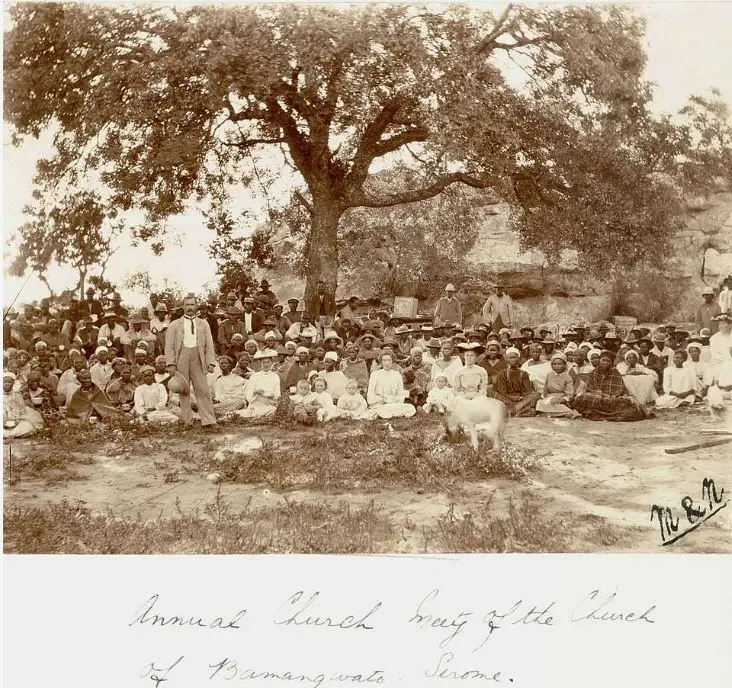 M & N
Annual Church Meetg of the Church
of Bamangwato. Serome.